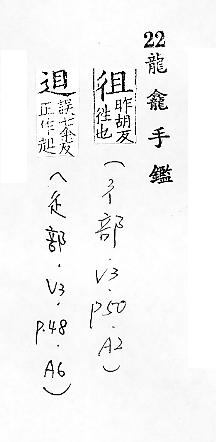 22 龍龕手鑑
徂 昨胡反
往也
(彳部.V3.P50.A2)
誤七余反
正作趄
(辵部.V3.P.48.A6)